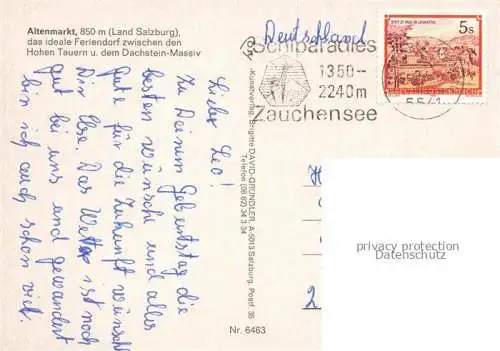 Altenmarkt, 850 m (Land Salzburg),
das ideale Feriendorf zwischen den
Hohen Tauern u. dem Dachstein-Massiv
Deutschland
Schiparadies
1350--
2240m
Zauchensee
5541
5s
STIFT ST. PAUL IM LAVANTTAL
REPUBLIK ÖSTERREICH
Lieber Leo!
Zu Deinem Geburtstag die
besten Wünsche und alles
Gute für die Zukunft wünscht
Din Ilse. Das Wetter ist noch
gut bei uns und gewandert
bin ich auch schon viel.
Kunstverlag Brigitte DAVID-GRÜNDLER, A-5013 Salzburg, Postf. 35
Telefon (06 62) 34 3 34
Nr. 6463
privacy protection
Datenschutz
2